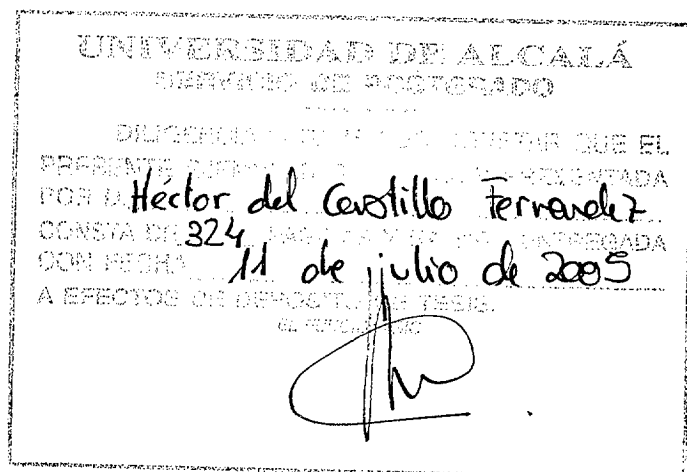 UNIVERSIDAD DE ALCALÁ
SERVICIO DE POSTGRADO
DILIGENCIA QUE EL
PRESENTE PRESENTADA
POR D. Héctor del Castillo Fernandez
CONSTA DE 324 ENTREGADA
CON FECHA 11 de julio de 2005
A EFECTOS DE DEPOSITO DE TESIS.